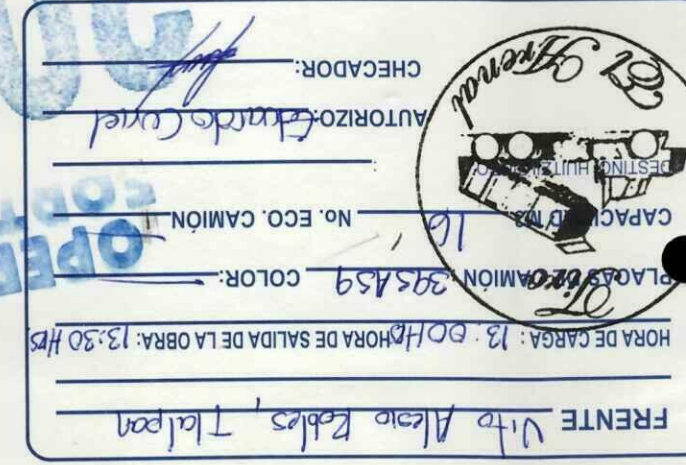 FRENTE Vito Alesio Robles, Tlalpan
HORA DE CARGA: 13:00 Hrs HORA DE SALIDA DE LA OBRA: 13:30 Hrs.
PLACAS DE CAMIÓN: 395AS9 COLOR:
CAPACIDAD M3 16 No. ECO. CAMIÓN
DESTINO: HUITZILACO
AUTORIZO: Eduardo
CHECADOR:
Tiro
El Arenal